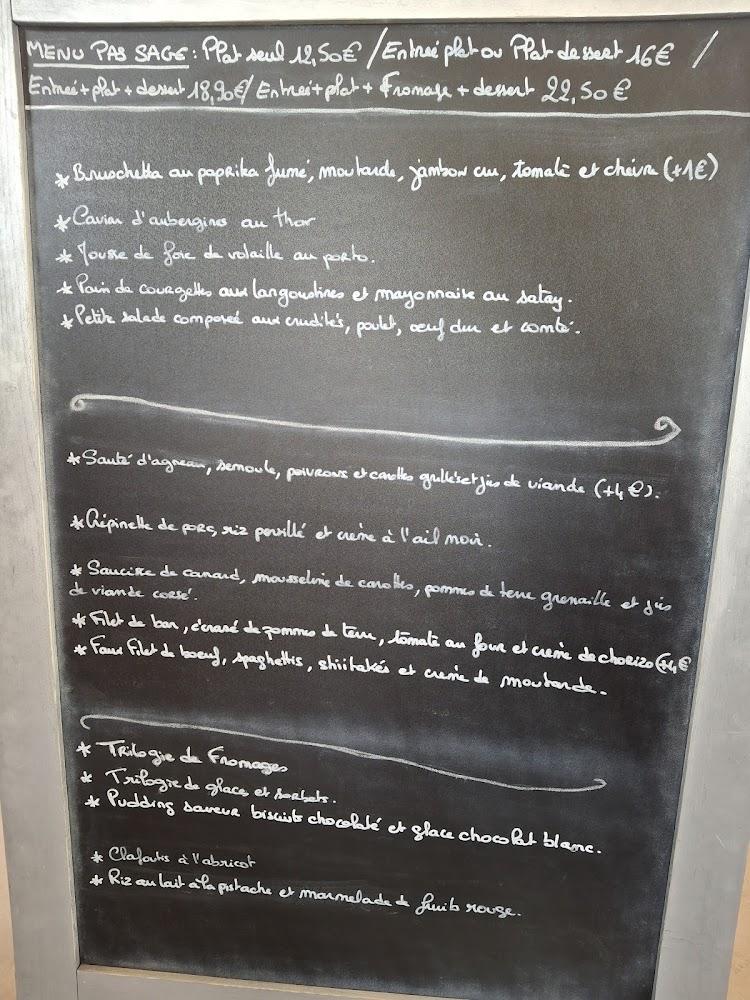 MENU PAS SAGE : Plat seul 12,50€ / Entrée plat ou Plat dessert 16€ /
Entrée + plat + dessert 18,90€ / Entrée + plat + Fromage + dessert 22,50€
* Bruschetta au paprika fumé, moutarde, jambon cru, tomate et chèvre (+1€)
* Caviar d'aubergines au thon
* Mousse de foie de volaille au porto.
* Pain de courgettes aux langoustines et mayonnaise au satay.
* Petite salade composée aux crudités, poulet, œuf dur et comté.
* Sauté d'agneau, semoule, poivrons et carottes grillés et jus de viande (+4€).
* Crépinette de porc, riz persillé et crème à l'ail noir.
* Saucisse de canard, mousseline de carottes, pommes de terre grenaille et jus
de viande corsé.
* Filet de bar, écrasé de pommes de terre, tomate au four et crème de chorizo (+4€
* Faux Filet de boeuf, spaghettis, shiitakés et crème de moutarde.
* Trilogie de Fromages
* Trilogie de glace et sorbets.
* Pudding saveur biscuits chocolaté et glace chocolat blanc.
* Clafoutis à l'abricot
* Riz au lait à la pistache et marmelade de fruits rouge.